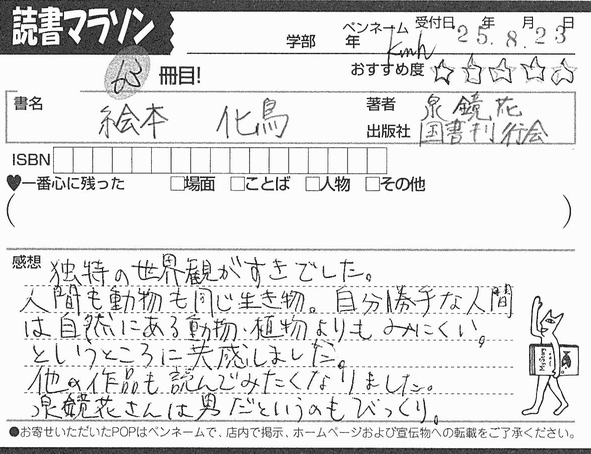 読書マラソン
学部 年 ペンネーム Kmh 受付日 25年 8月 23日
63 冊目! おすすめ度 ☆☆☆☆☆
書名 絵本 化鳥 著者 泉鏡花
出版社 国書刊行会
ISBN
♥一番心に残った □場面 □ことば □人物 □その他
( )
感想 独特の世界観がすきでした。
人間も動物も同じ生き物。自分勝手な人間
は自然にある動物・植物よりもみにくい。
というところに共感しました。
他の作品も読んでみたくなりました。
泉鏡花さんは男だというのもびっくり。
●お寄せいただいたPOPはペンネームで、店内で掲示、ホームページおよび宣伝物への転載をご了承ください。